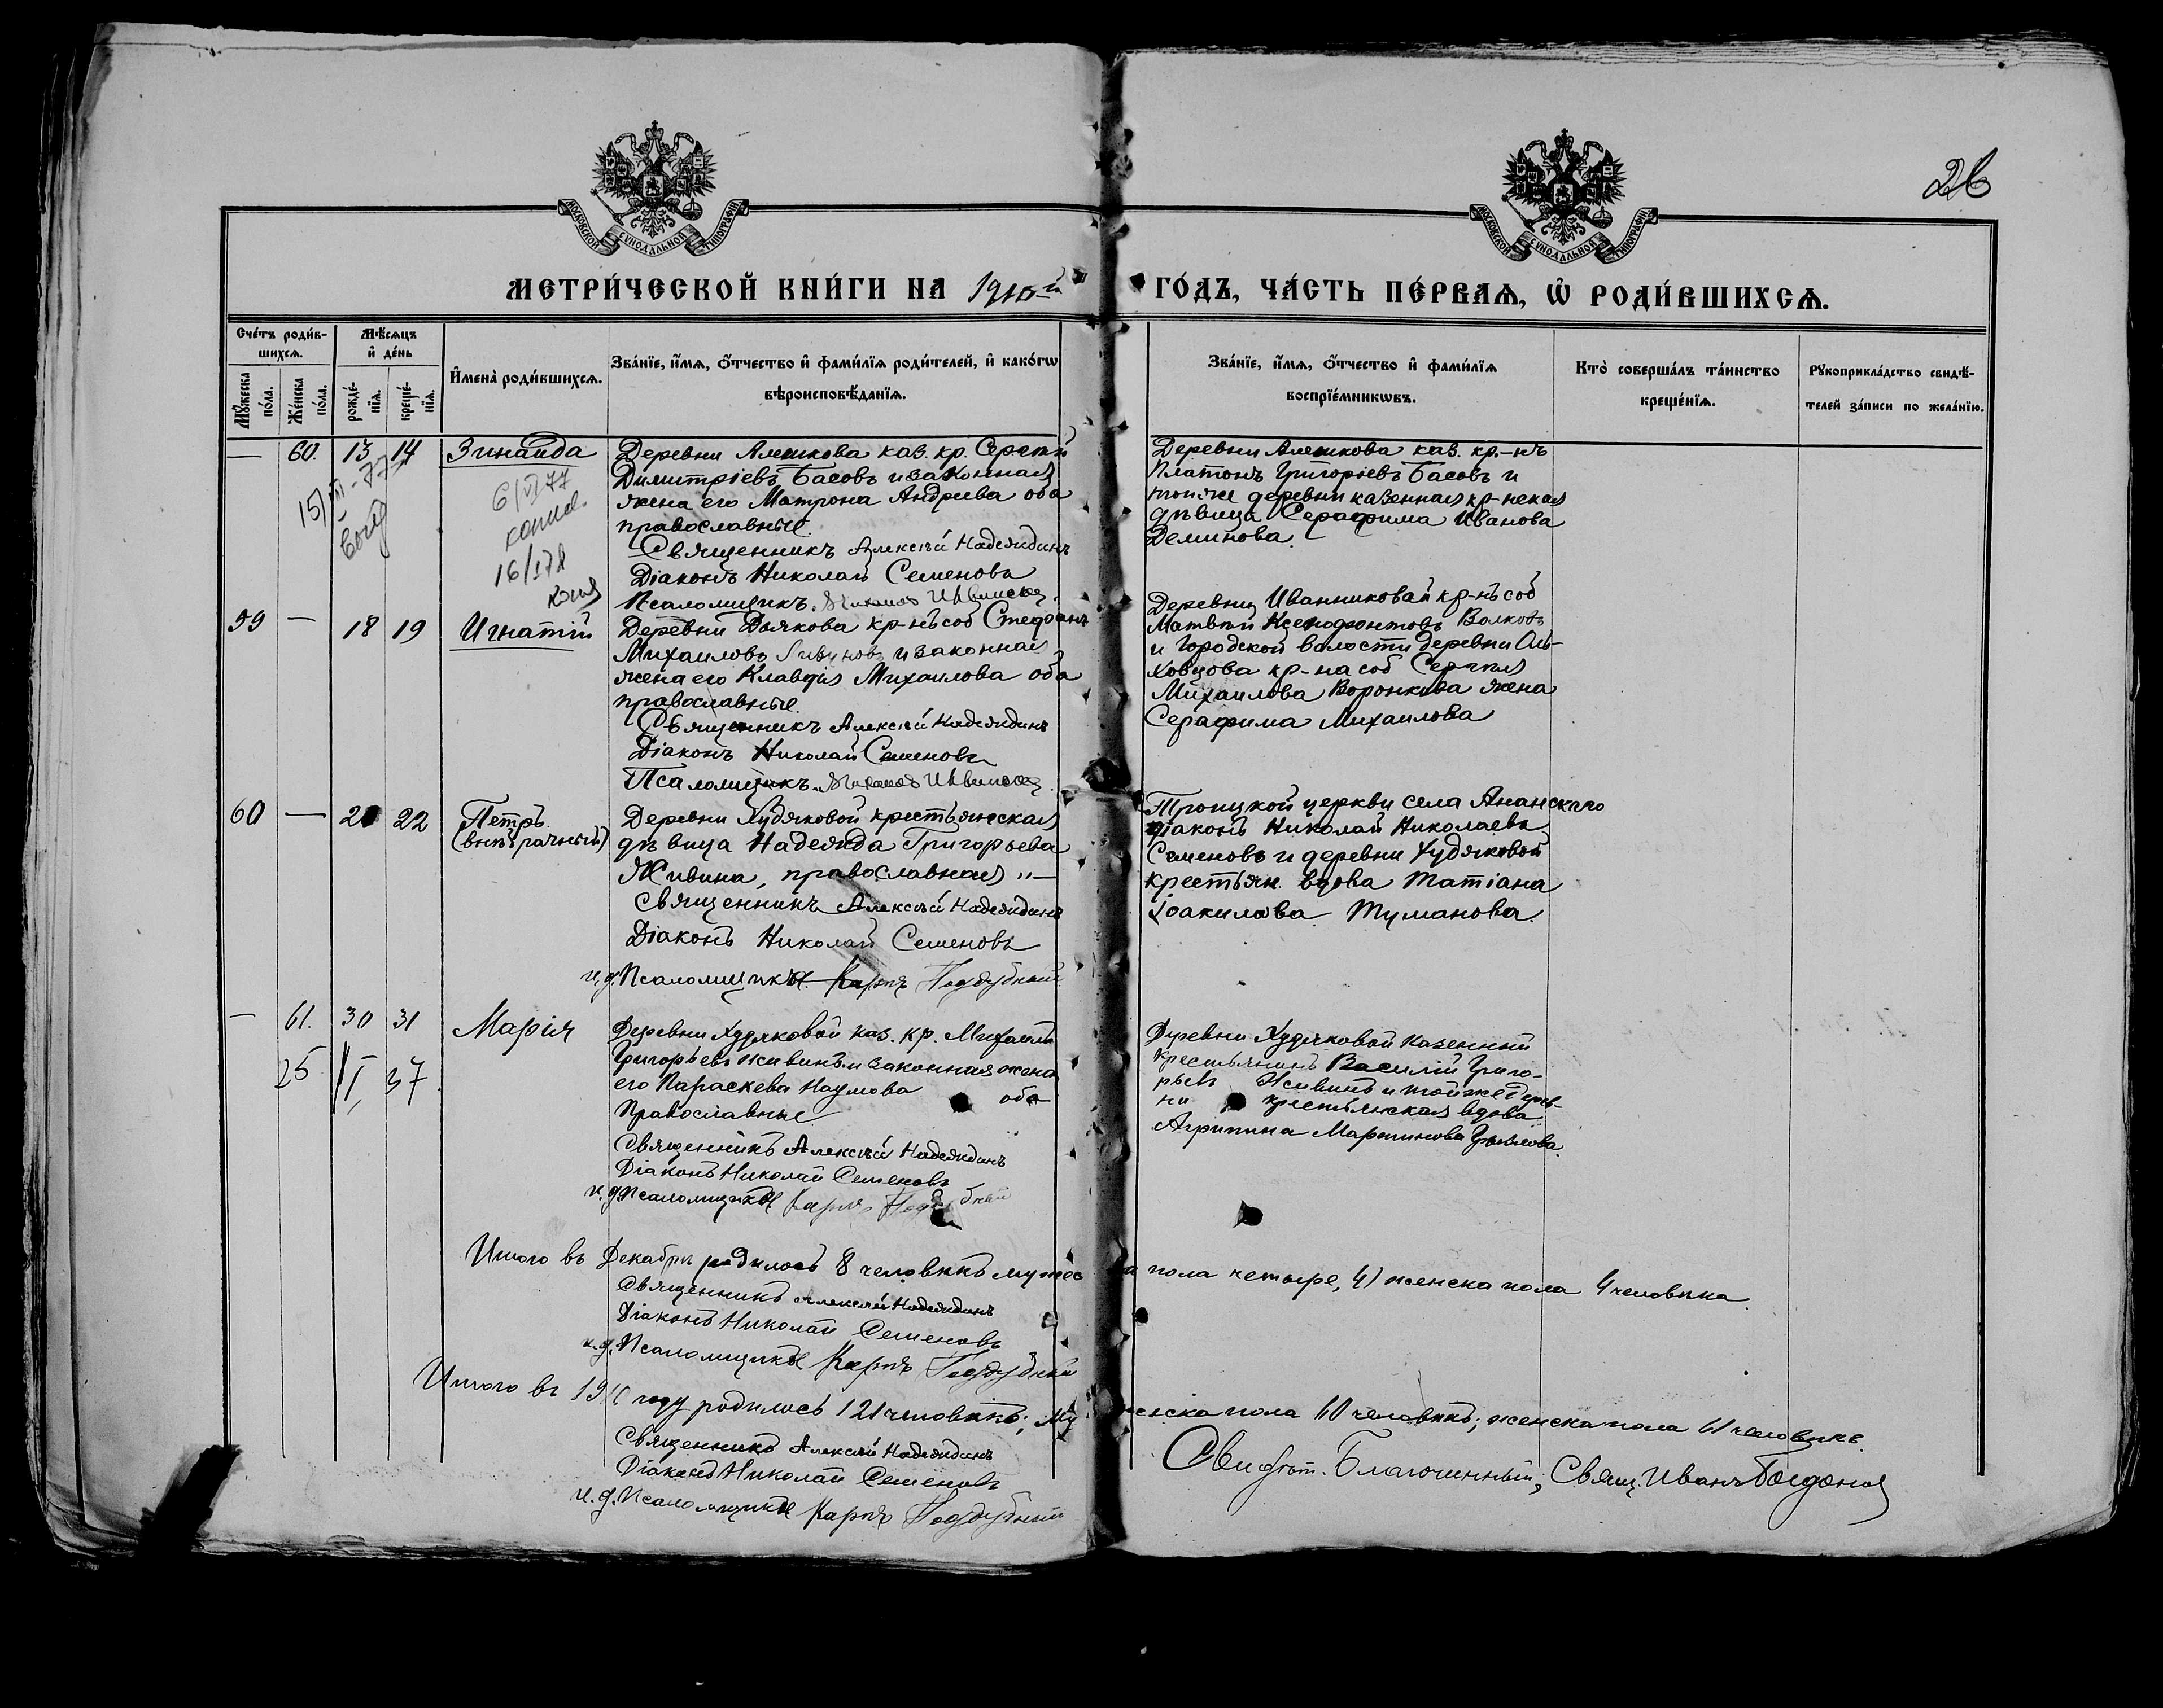 26
МОСКОВСКОЙ СѴНОДАЛЬНОЙ ТИПОГРАФІИ
МОСКОВСКОЙ СѴНОДАЛЬНОЙ ТИПОГРАФІИ
МЕТРИ́ЧЕСКОЙ КНИ́ГИ НА 1910-й ГО́ДЪ, ЧА́СТЬ ПЕ́РВАѦ, Ѽ РОДИ́ВШИХСѦ.
Сче́тъ роди́в-
шихсѧ.
Мѣ́сѧцъ
и҆ де́нь
Мꙋ́жеска по́ла.
Же́нска по́ла.
рожде́-
нїѧ.
креще́-
нїѧ.
И҆мена̀ роди́вшихсѧ.
Зва́нїе, и҆́мѧ, ѻ҆́тчество и҆ фами́лїѧ роди́телей, и҆ како́гѡ
вѣроисповѣ́данїѧ.
Зва́нїе, и҆́мѧ, ѻ҆́тчество и҆ фами́лїѧ
воспрїе́мникѡвъ.
Кто̀ соверша́лъ та́инство
креще́нїѧ.
Рꙋкоприкла́дство свидѣ́-
телей за́писи по жела́нїю.
— 60. 13 14 Зинаида
6/VI 77
копия
16/I 78
Деревни Алешкова каз. кр. Сергѣй
Димитріевъ Басовъ и законная
жена его Матрона Андреева оба
православные.
Священникъ Алексѣй Надеждинъ
Діаконъ Николай Семеновъ
Псаломщикъ
Деревни Алешкова каз. кр-нъ
Платонъ Григорьевъ Басовъ и
той же деревни казенная кр-нская
дѣвица Серафима Иванова
Демидова.
59 — 18 19 Игнатій
Деревни Дьякова кр-нъ соб Стефанъ
Михаиловъ и законная
жена его Клавдія Михаилова оба
православные.
Священникъ Алексѣй Надеждинъ
Діаконъ Николай Семеновъ
Псаломщикъ
Деревни Иванниковой кр-нъ соб
Матвѣй Ксенофонтовъ Волковъ
и Городской волости деревни Оль-
ховцова кр-на соб Сергѣя
Михаилова Воронкова жена
Серафима Михаилова
60 — 21 22 Петръ
(внѣбрачный)
Деревни Худяковой крестьянская
дѣвица Надежда Григорьева
Живина, православная
Священникъ Алексѣй Надеждинъ
Діаконъ Николай Семеновъ
и.д. Псаломщика Карпъ Поддубный
Троицкой церкви села Ананскаго
діаконъ Николай Николаевъ
Семеновъ и деревни Худяковой
крестьян. вдова Татіана
Іоакимова Туманова.
— 61. 30 31 Марія
25 VI 37.
Деревни Худяковой каз. кр. Михаилъ
Григорьевъ Живинъ и законная жена
его Параскева Наумова оба
Православные
Священникъ Алексѣй Надеждинъ
Діаконъ Николай Семеновъ
и.д. Псаломщика Карпъ Поддубный
Деревни Худяковой казенный
крестьянинъ Василій Григо-
рьевъ Живинъ и той же дерев-
ни крестьянская вдова
Агрипина Мартинова
Итого въ Декабрѣ родилось 8 человѣкъ мужеска пола четыре, 4) женска пола 4 человѣка.
Священникъ Алексѣй Надеждинъ
Діаконъ Николай Семеновъ
и.д. Псаломщика Карпъ Поддубный
Итого въ году родилось 121 человѣкъ; мужеска пола 60 человѣкъ; женска пола 61 человѣкъ.
Священникъ Алексѣй Надеждинъ
Діаконъ Николай Семеновъ
и.д. Псаломщика Карпъ Поддубный
Свидѣт. Благочинный, Свящ. Иванъ